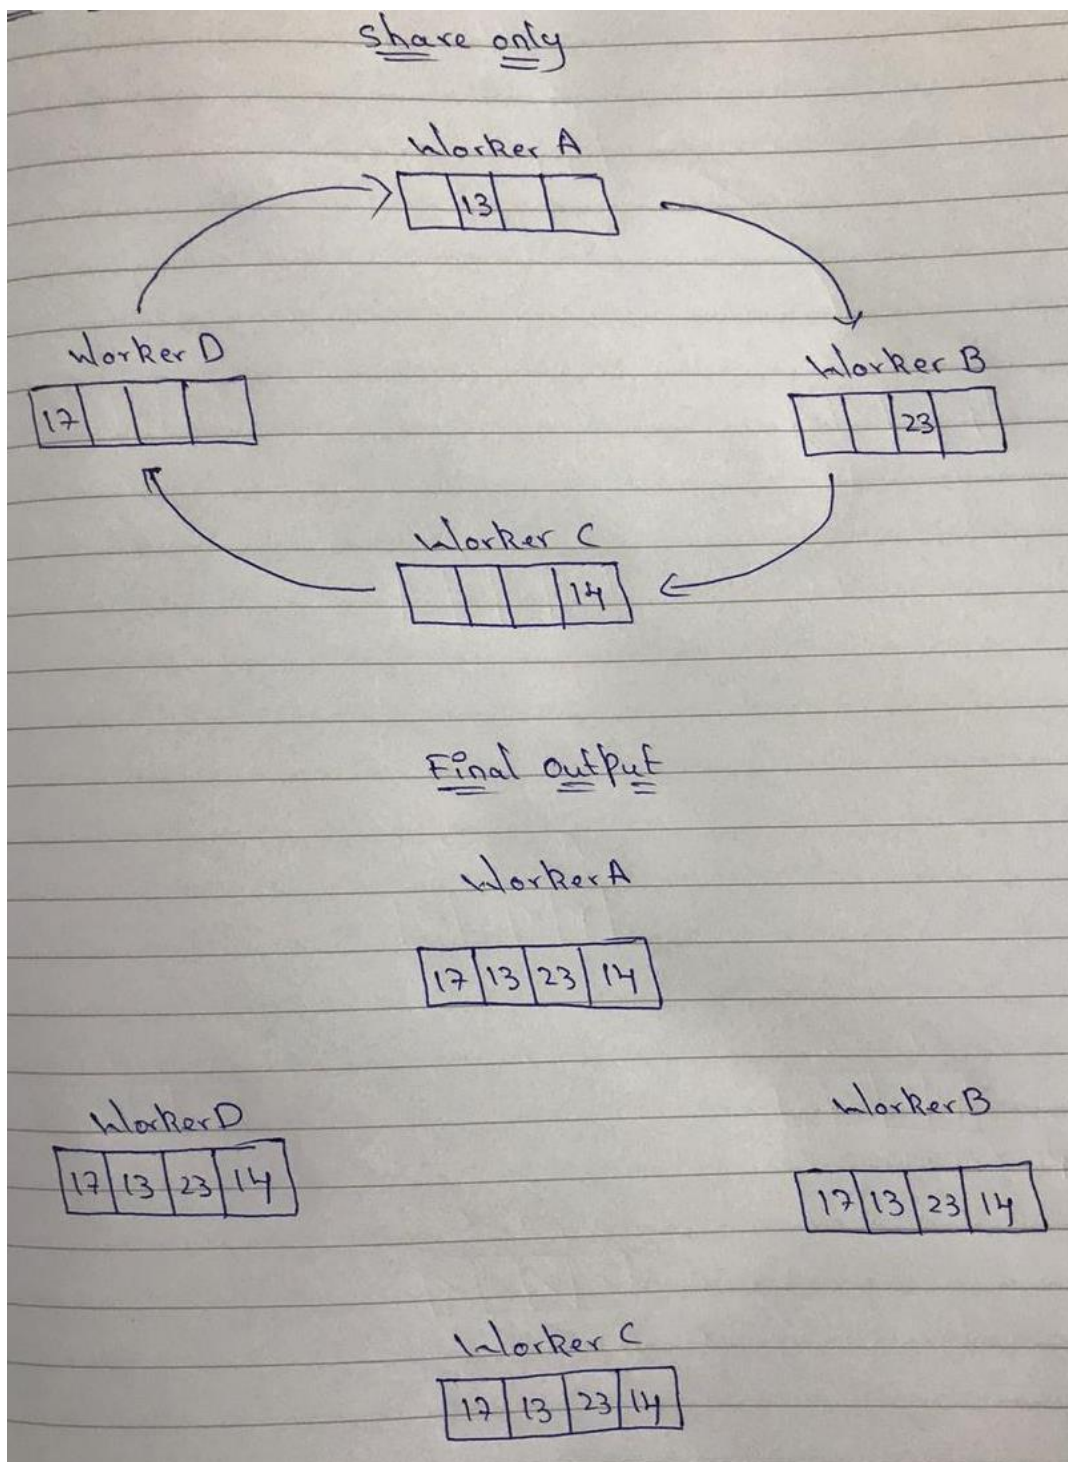 Share only
Worker A
13
Worker D
17
Worker B
23
Worker C
14
Final Output
Worker A
17 13 23 14
Worker D
17 13 23 14
Worker B
17 13 23 14
Worker C
17 13 23 14